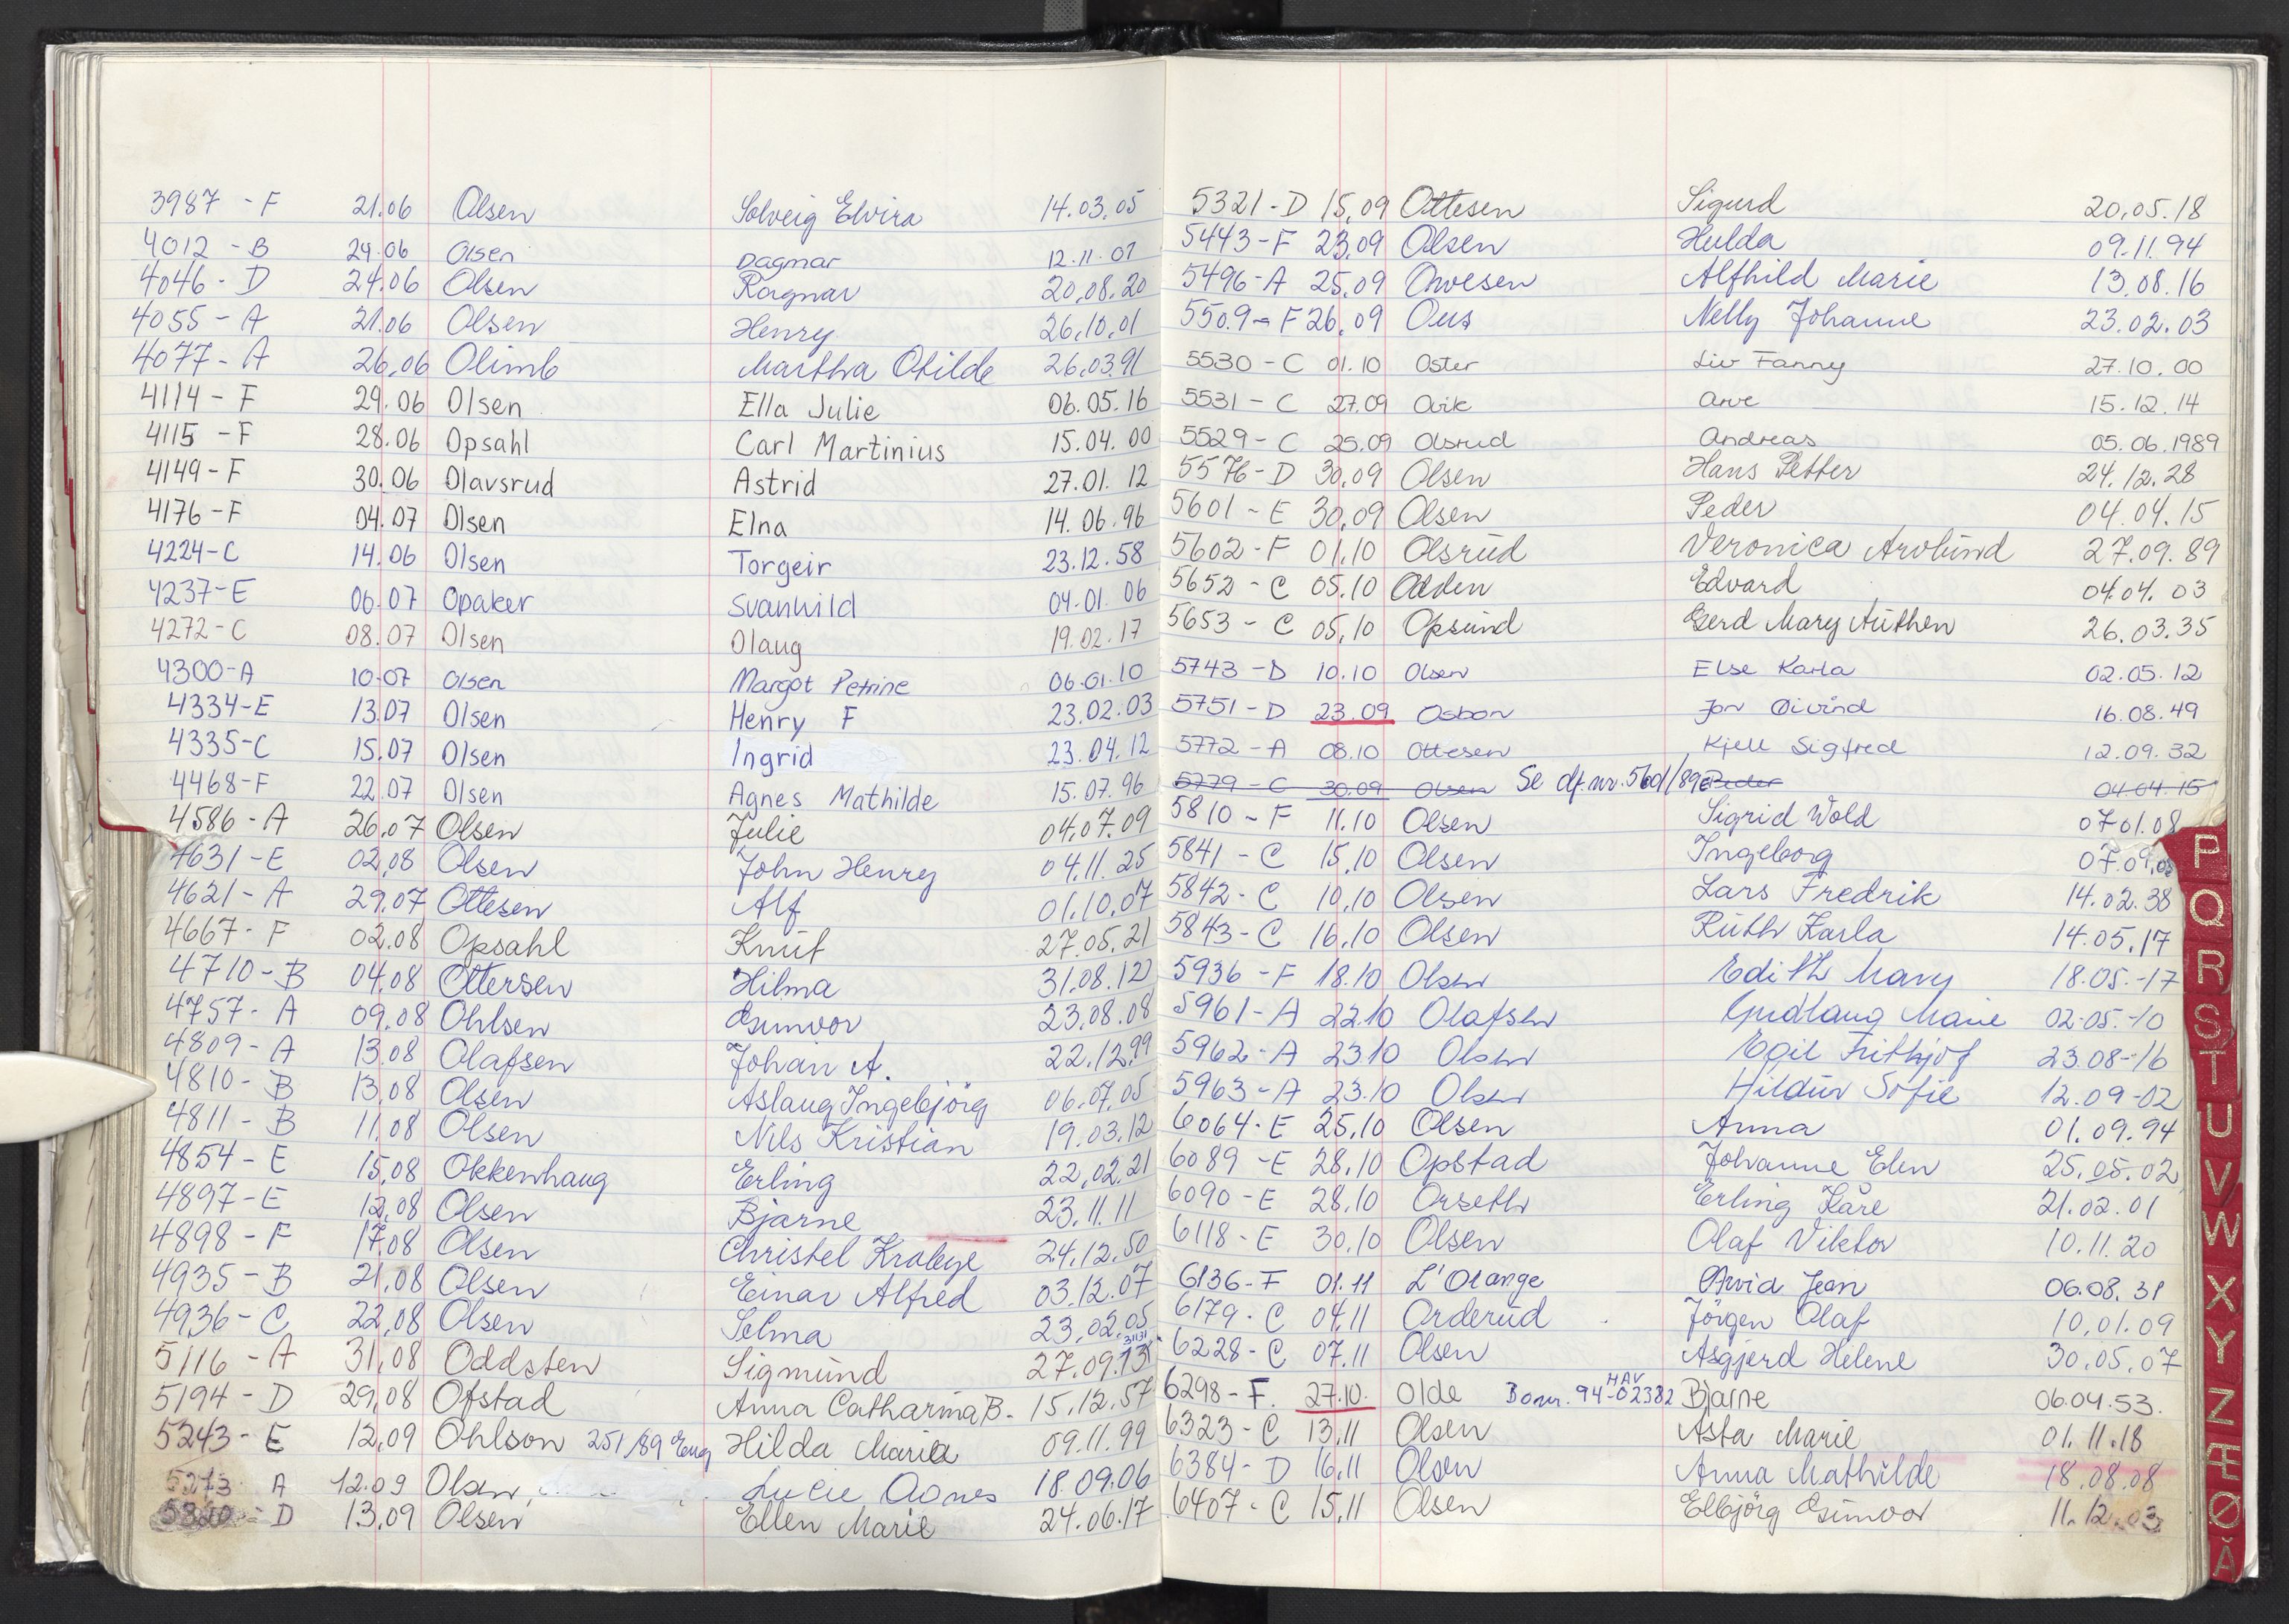 3987 - F 21.06 Olsen Solveig Elvira 14.03.05
4012 - B 24.06 Olsen Dagmar 12.11.07
4046 - D 24.06 Olsen Ragnar 20.08.20
4055 - A 21.06 Olsen Henry 26.10.01
4077 - A 26.06 Olimb Martha Otilde 26.03.91
4114 - F 29.06 Olsen Ella Julie 06.05.16
4115 - F 28.06 Opsahl Carl Martinius 15.04.00
4149 - F 30.06 Olavsrud Astrid 27.01.12
4176 - F 04.07 Olsen Elna 14.06.96
4224 - C 14.06 Olsen Torgeir 23.12.58
4237 - E 06.07 Opaker Svanhild 04.01.06
4272 - C 08.07 Olsen Olaug 19.02.17
4300 - A 10.07 Olsen Margot Petrine 06.01.10
4334 - E 13.07 Olsen Henry F 23.02.03
4335 - C 15.07 Olsen Ingrid 23.04.12
4468 - F 22.07 Olsen Agnes Mathilde 15.07.96
4586 - A 26.07 Olsen Julie 04.07.09
4631 - E 02.08 Olsen John Henry 04.11.25
4621 - A 29.07 Ottesen Alf 01.10.07
4667 - F 02.08 Opsahl Knut 27.05.21
4710 - B 04.08 Ottersen Hilma 31.08.12
4757 - A 09.08 Ohlsen Gunvor 23.08.08
4809 - A 13.08 Olafsen Johan A. 22.12.99
4810 - B 13.08 Olsen Aslaug Ingebjörg 06.07.05
4811 - B 11.08 Olsen Nils Kristian 19.03.12
4854 - E 15.08 Okkenhaug Erling 22.02.21
4897 - E 12.08 Olsen Bjarne 23.11.11
4898 - F 17.08 Olsen Christel Krabye 24.12.50
4935 - B 21.08 Olsen Einar Alfred 03.12.07
4936 - C 22.08 Olsen Selma 23.02.05
5116 - A 31.08 Oddsten Sigmund 27.09.13
5194 - D 29.08 Ofstad Anna Catharina B. 15.12.57
5243 - E 12.09 Ohlson 251/89 Eng Hilda Maria 09.11.99
5273 A 12.09 Olsen Lucie Agnes 18.09.06
D 13.09 Olsen Ellen Marie 24.06.17
5321 - D 15.09 Ottesen Sigurd 20.05.18
5443 - F 23.09 Olsen Hulda 09.11.94
5496 - A 25.09 Onvesen Alfhild Marie 13.08.16
5509 - F 26.09 Ous Nelly Johanne 23.02.03
5530 - C 01.10 Oster Liv Fanny 27.10.00
5531 - C 27.09 Arve 15.12.14
5529 - C 25.09 Olsrud Andreas 05.06.1989
5576 - D 30.09 Olsen Hans Petter 24.12.28
5601 - E 30.09 Olsen Peder 04.04.15
5602 - F 01.10 Olsrud Veronica Arvlund 27.09.89
5652 - C 05.10 Odden Edvard 04.04.03
5653 - C 05.10 Opsund Gerd Mary Authen 26.03.35
5743 - D 10.10 Olsen Else Karla 02.05.12
5751 - D 23.09 Osbon Jon Øivind 16.08.49
5772 - A 08.10 Ottesen Kjell Sigfred 12.09.32
5779 - C 30.09 Olsen Se df.nr. 5601/89 Peder 04.04.15
5810 - F 11.10 Olsen Sigrid Wold 07.01.08
5841 - C 15.10 Olsen Ingeborg 07.09.03
5842 - C 10.10 Olsen Lars Fredrik 14.02.38
5843 - C 16.10 Olsen Ruth Karla 14.05.17
5936 - F 18.10 Olsen Edith Mary 18.05.-17
5961 - A 22.10 Olafsen Gudlaug Marie 02-05.-10
5962 - A 23.10 Olsen Egil Frithjof 23.08-16
5963 - A 23.10 Olsen Hildur Sofie 12.09-02
6064 - E 25.10 Olsen Anna 01.09.94
6089 - E 28.10 Opstad Johanne Elen 25.05.02
6090 - E 28.10 Orseth Erling Kåre 21.02.01
6118 - E 30.10 Olsen Olaf Viktor 10.11.20
6136 - F 01.11 L'Orange Arvid Jean 06.08.31
6179 - C 04.11 Orderud Jörgen Olaf 10.01.09
6228 - C 07.11 Olsen Asgjerd Helene 30.05.07
6298 - F. 27.10. Olde Bonr. 94-02382 HAV Bjarne 06.04.53.
6323 - C 13.11 Olsen Asta Marie 01.11.18
6384 - D 16.11 Olsen Anna Mathilde 18.08.08
6407 - C 15.11 Olsen Elbjörg Gunvor 11.12.03
P
Q
R
S
T
U
V
W
X
Y
Z
Æ
Ø
Å